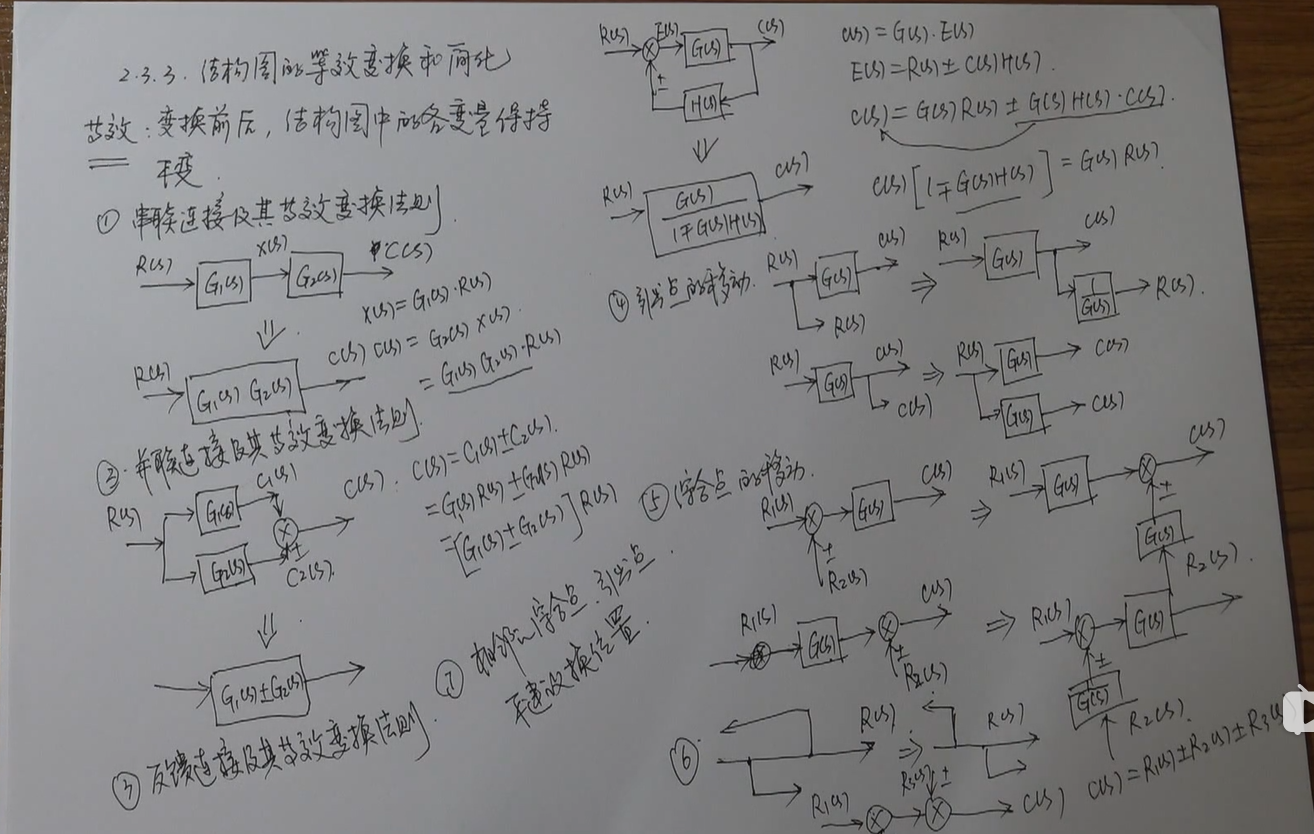 2.3.3. 结构图的等效变换和简化
等效：变换前后，结构图中的各变量保持
不变.
① 串联连接及其等效变换法则.
R(s) G₁(s) X(s) G₂(s) C(s)
X(s)=G₁(s)·R(s)
C(s)=G₂(s)X(s).
=G₁(s)G₂(s)·R(s)
R(s) G₁(s) G₂(s) C(s)
②. 并联连接及其等效变换法则.
R(s) G₁(s) C₁(s)
G₂(s) C₂(s). ± C(s).
C(s)=C₁(s)±C₂(s).
=G₁(s)R(s)±G₂(s)R(s)
=[G₁(s)±G₂(s)]R(s)
G₁(s)±G₂(s)
③ 反馈连接及其等效变换法则.
R(s) E(s) G(s) C(s)
± H(s)
C(s)=G(s)·E(s)
E(s)=R(s)±C(s)H(s).
C(s)=G(s)R(s)±G(s)H(s)·C(s).
C(s)[1∓G(s)H(s)]=G(s)R(s).
R(s) G(s)/1∓G(s)H(s) C(s)
④ 引出点的移动.
R(s) G(s) C(s) ⇒ R(s) G(s) C(s)
R(s) 1/G(s) R(s).
R(s) G(s) C(s) ⇒ R(s) G(s) C(s)
C(s) G(s) C(s)
⑤ 综合点的移动.
R₁(s) G(s) C(s) ⇒ R₁(s) G(s) C(s)
± R₂(s) ± G(s) R₂(s).
R₁(s) G(s) C(s) ⇒ R₁(s) G(s)
± R₂(s) ± 1/G(s) R₂(s).
⑥.
R(s) ⇒ R(s)
R₁(s) R₃(s) ± C(s) C(s)=R₁(s)±R₂(s)±R₃(s)
⑦ 相邻的综合点、引出点.
不建议换位置.